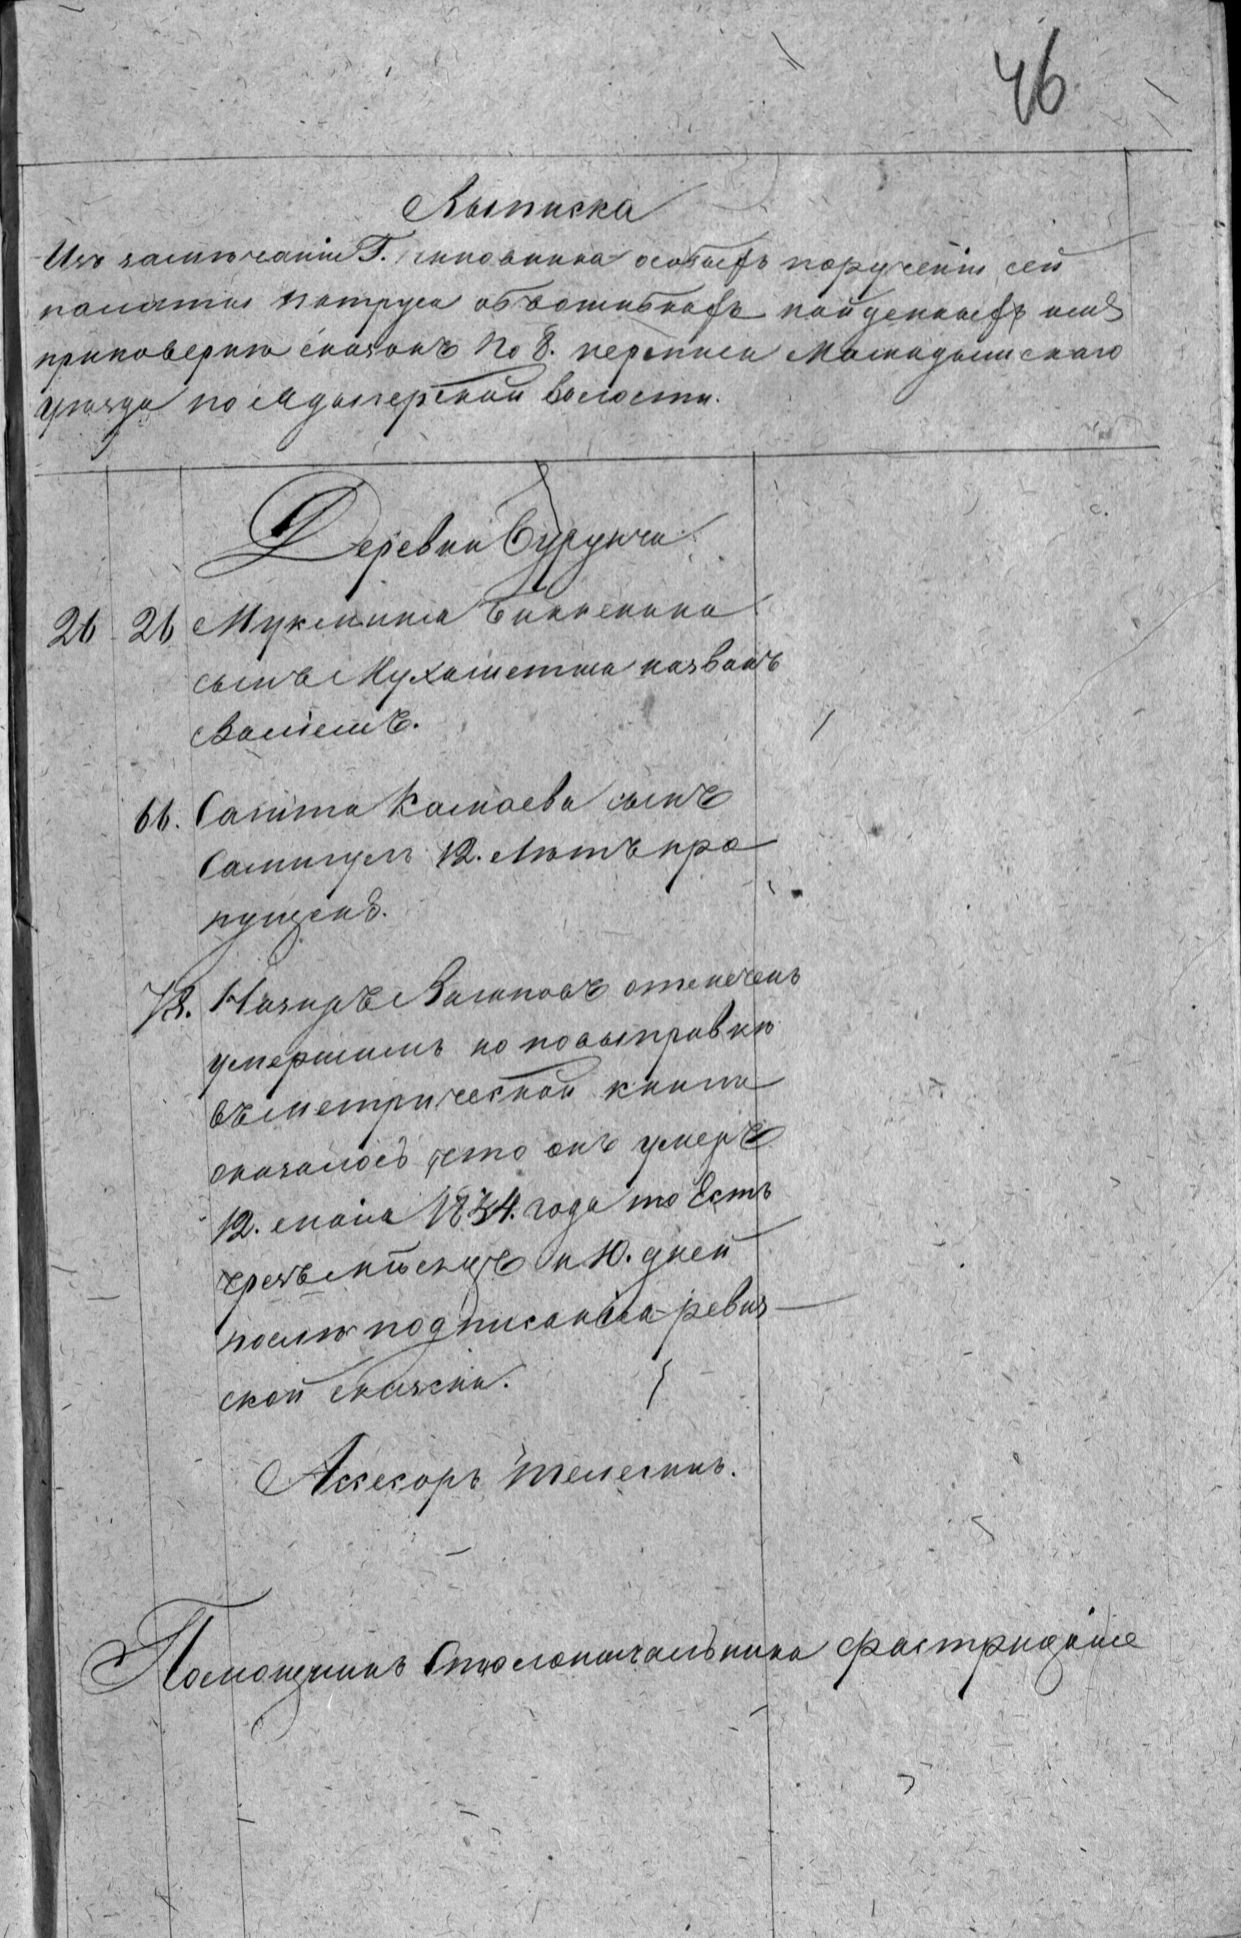 46
Выписка
Изъ замѣчаніи Г. чиновника особыхъ порученіи сей
палаты объ ошибкахъ найденныхъ имъ
приповеркѣ сказокъ По 8. переписи Мамадышскаго
уѣзда по волости.
Деревни
26 26 Мукмина сынъ Мухаметша названъ
Валиемъ.
66. Сагита Камаева сынъ
12. Лѣтъ про
пущенъ.
78. отмеченъ
умершимъ но повыправкѣ
въметрической книги
оказалось что онъ умеръ
12. маія 1834. года то Есть
чрезъ мѣсяцъ и 10. дней
послѣ подписанія ревиз
ской сказки.
Ассесоръ Телегинъ.
Помощникъ Столоначальника